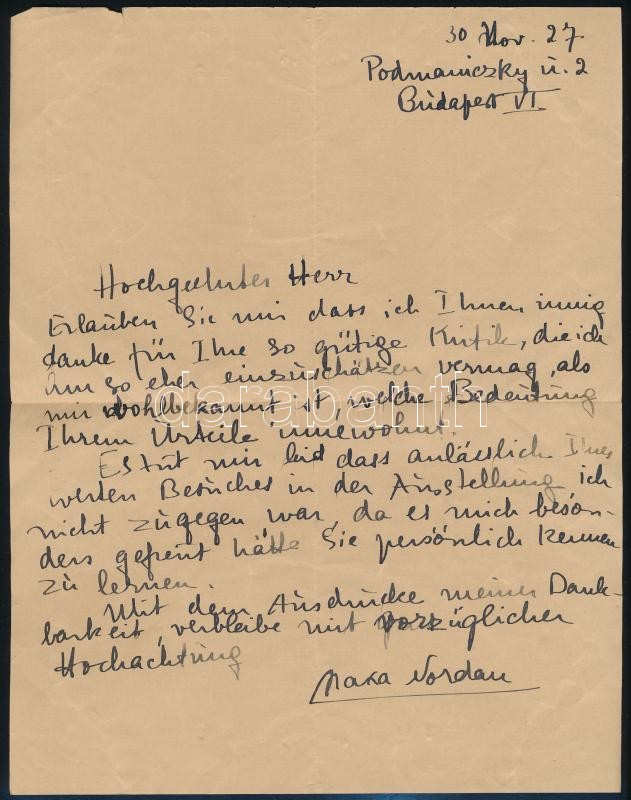 30 Nov. 27
Podmaniczky ú. 2
Budapest VI
Hochgeehrter Herr
Erlauben Sie mir dass ich Ihnen innig
danke für Ihre so gütige Kritik, die ich
um so eher einzuschätzen vermag, als
mir wohlbekannt ist, welche Bedeutung
Ihrem Urteile innewohnt.
Es tut mir leid dass anlässlich Ihres
werten Besuches in der Ausstellung ich
nicht zugegen war, da es mich beson-
ders gefreut hätte Sie persönlich kennen
zu lernen.
Mit dem Ausdrucke meiner Dank-
barkeit, verbleibe mit vorzüglicher
Hochachtung
Maxa Nordau
darabanth